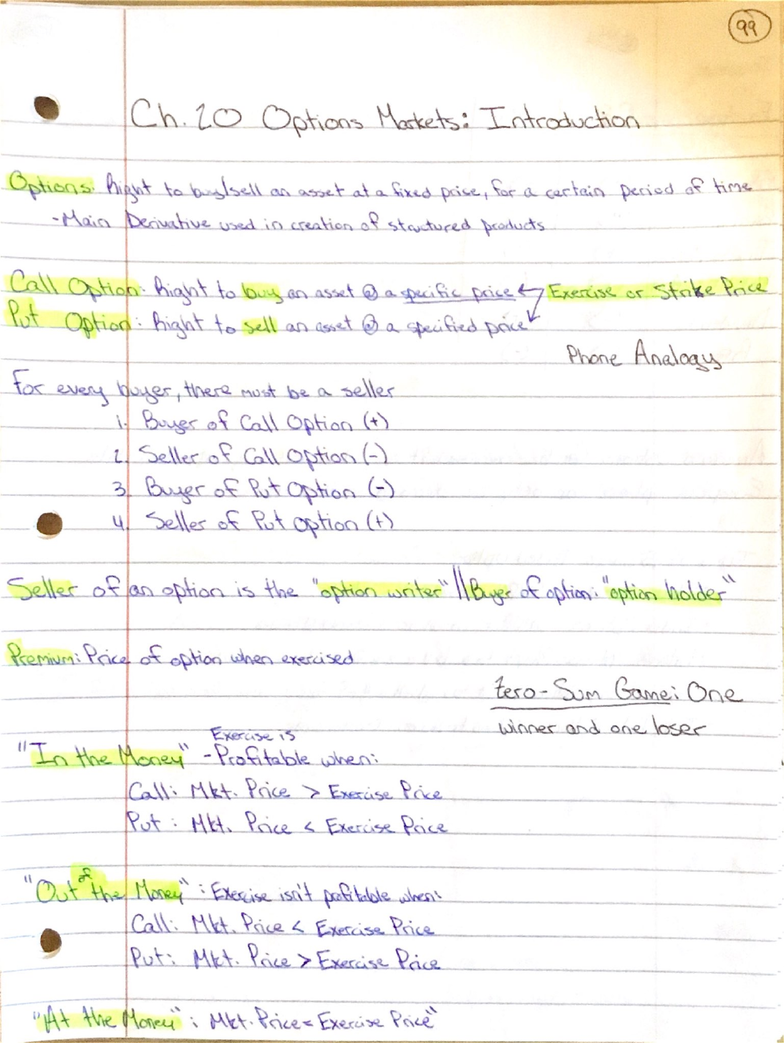 99
Ch. 20 Options Markets: Introduction
Options: Right to buy/sell an asset at a fixed price, for a certain period of time
-Main Derivative used in creation of structured products
Call Option: Right to buy an asset @ a specific price Exercise or Strike Price
Put Option: Right to sell an asset @ a specified price
Phone Analogy
For every buyer, there must be a seller
1. Buyer of Call Option (+)
2. Seller of Call Option (-)
3. Buyer of Put Option (-)
4. Seller of Put Option (+)
Seller of an option is the "option writer" || Buyer of option: "option holder"
Premium: Price of option when exercised
Zero-Sum Game: One
winner and one loser
"In the Money" - Exercise is Profitable when:
Call: Mkt. Price > Exercise Price
Put: Mkt. Price < Exercise Price
"Out of the Money": Exercise isn't profitable when:
Call: Mkt. Price < Exercise Price
Put: Mkt. Price > Exercise Price
"At the Money": Mkt. Price = Exercise Price"